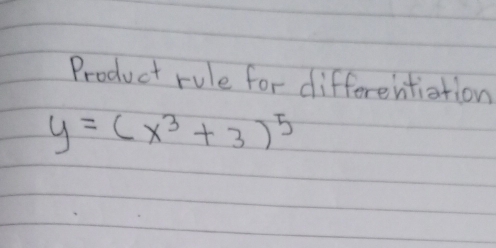 Product rule for differentiation
y = (x³ + 3)⁵